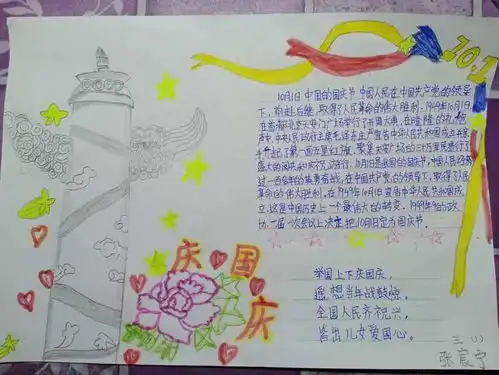 10.1
10月1日 中国的国庆节 中国人民在中国共产党的领导
下,前赴后继,取得了人民革命的伟大胜利.1949年10月1日
在首都北京天安门广场举行了开国大典,在隆隆的礼炮
声中,中央人民政府主席毛泽东庄严宣告中华人民共和国成立并亲手
升起了第一面五星红旗。聚集天安门广场的三十万军民举行了
盛大的阅兵和庆祝游行。10月1日是我国的国庆节,中国人民经
过一百多年的英勇奋战,在中国共产党的领导下,取得了人民
革命的伟大胜利,在1949年10月1日宣告中华人民共和国成
立,这是中国历史上一个最伟大的转变。1949年9月的政
协一届一次会议上决定把10月1日定为国庆节。
国庆
庆
举国上下庆国庆,
遥想当年战鼓惊,
全国人民齐祝兴,
皆出儿女爱国心。
三(1)
张宸宁